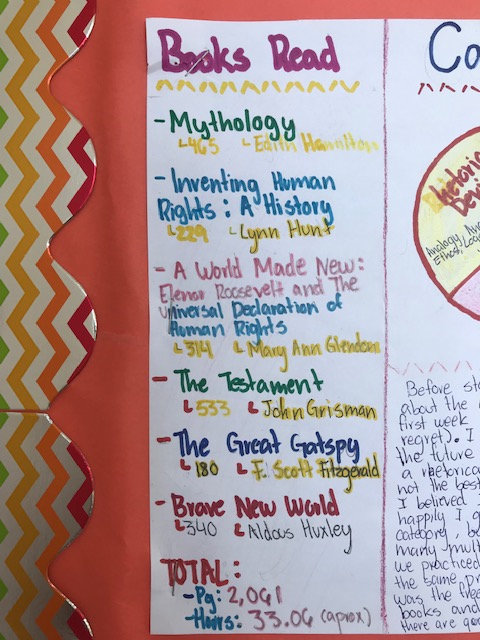 Books Read
- Mythology
465 Edith Hamilton
- Inventing Human
Rights: A History
229 Lynn Hunt
- A World Made New:
Elenor Roosevelt and The
Universal Declaration of
Human Rights
314 Mary Ann Glendon
- The Testament
533 John Grisman
- The Great Gatspy
180 F. Scott Fitzgerald
- Brave New World
340 Aldous Huxley
TOTAL:
- Pg: 2,061
- Hours: 33.06 (aprox)
Co
Analogy
Ethos,
Before
about the
first week
regret). I
the future
a rhetorica
not the bes
I believed
happily I g
category, be
many mult
we practiced
the same, pr
was the free
books and
there are goo